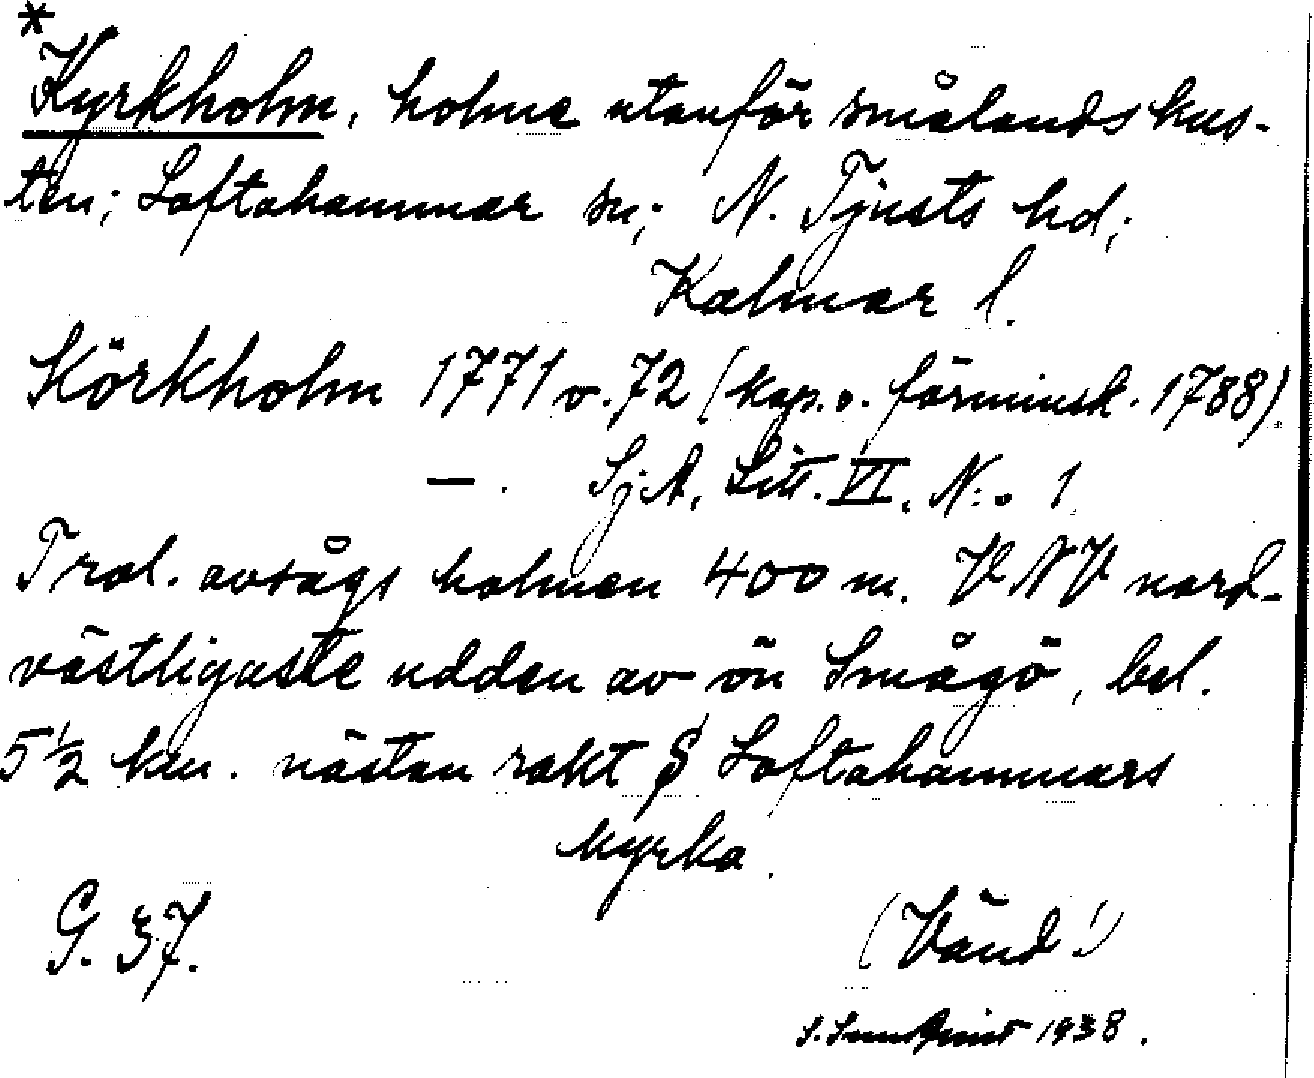 *
Kyrkholm, holme utanför smålandskus-
ten; Loftahammar sn; N. Tjusts hd;
Kalmar l.
Körkholm 1771 o. 72 (kop. o. förminsk. 1788)
— . SjA, Litt. VI, N:o 1
Trol. avsågs holmen 400 m. VNV nord-
västligaste udden av ön Smågö, bel.
5 1/2 km. nästan rakt S Loftahammars
kyrka.
G. 37. (Vänd!)
S. 1938.